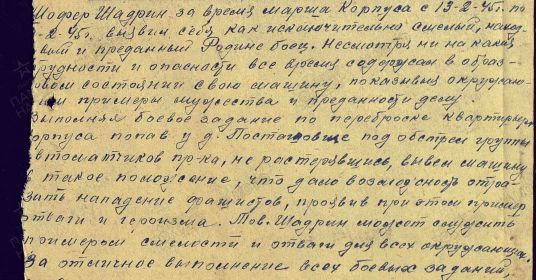 Шофер Шадрин за время марша Корпуса с 13-2-45г. по
-2-45г. вызвил себя как исключительно смелый, наход-
ый и преданный Родине боец. Несмотря ни на какие
трудности и опасности все время содержал в образ-
овом состоянии свою машину, показывая окружаю-
им примеры мужества и преданности делу.
Выполняя боевое задание по переброске квартирьер
орпуса попав у д. под обстрел группы
втоматчиков пр-ка, не растерявшись, вывел машину
в такое положение, что дало возможность отра-
зать нападение фашистов, проявив при этом пример
отваги и героизма. Тов. Шадрин может служить
примером смелости и отваги для всех окружающих.
За отличное выполнение всех боевых заданий,